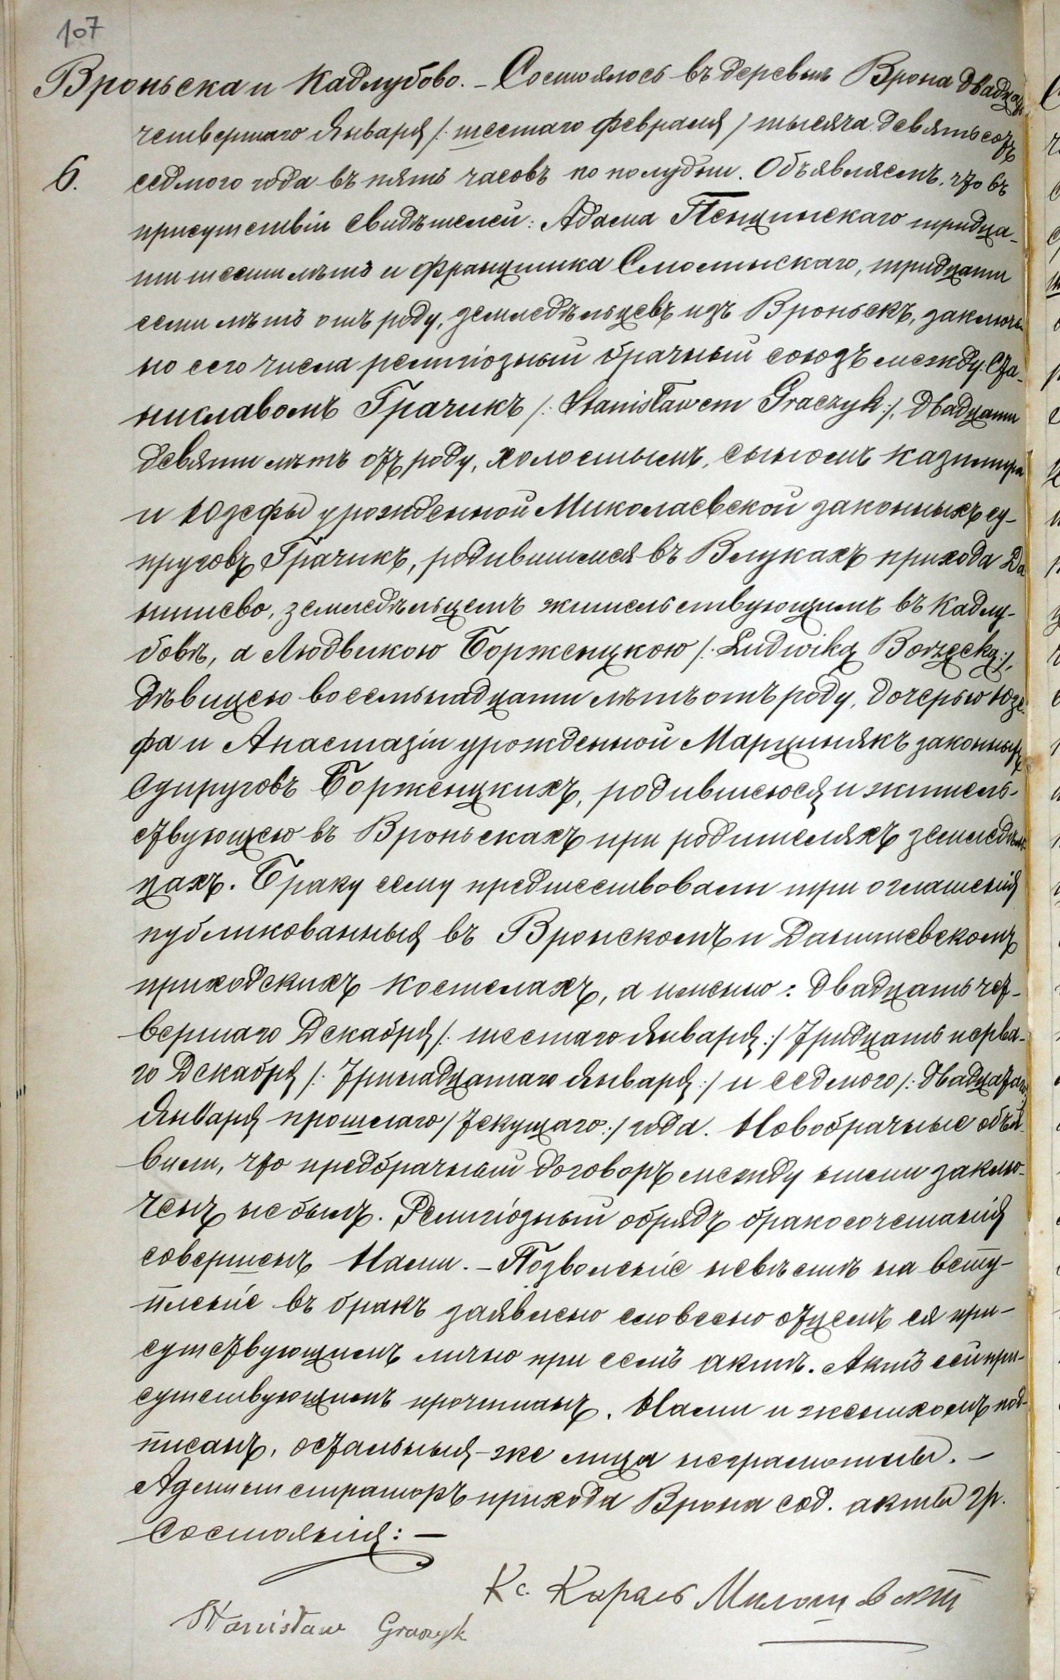 107
Вроньска и Кадлубово. – Состоялось въ деревнѣ Врона двадца
четвертаго Января /: шестаго Февраля / тысяча девятьсотъ
6. седмого года въ пять часовъ по полудни. Объявляемъ, что въ
присутствіи свидѣтелей: Адама Пенцинскаго тридца-
ти шести лѣтъ и Францишка Смолинскаго, тридцати
семи лѣтъ отъ роду, земледѣльцевъ изъ Вроньскъ, заключе
но сего числа религіозный брачный союзъ между Ста-
ниславомъ Грачикъ /: Stanisławem Graczyk :/, двадцати
девяти лѣтъ отъ роду, холостымъ, сыномъ Казимира
и Юзефы урожденной Миколаевской законныхъ су-
пруговъ Грачикъ, родившемся въ Влукахъ прихода Да
нишево, земледѣльцемъ жительствующимъ въ Кадлу-
бовѣ, а Людвикою Борженцкою /: Ludwiką Borzęcką :/,
дѣвицею восемьнадцати лѣтъ отъ роду, дочерью Юзе-
фа и Анастазіи урожденной Марцинякъ законныхъ
супруговъ Борженцкихъ, родившеюся и житель-
ствующею въ Вроньскахъ при родителяхъ земледѣль-
цахъ. Браку сему предшествовали три оглашенія
публикованныя въ Вронскомъ и Данишевскомъ
приходскихъ костелахъ, а именно: двадцать чет-
вертаго Декабря /: шестаго Января :/ тридцать перва-
го Декабря /: тринадцатаго Января :/ и седмого /: двадцатаго
Января прошлаго / текущаго :/ года. Новобрачные объя-
вили, что предбрачный договоръ между ними заклю-
ченъ не былъ. Религіозный обрядъ бракосочетанія
совершенъ Нами. – Позволеніе невѣстѣ на всту-
пленіе въ бракъ заявлено словесно отцемъ ея при-
сутствующимъ лично при семъ актѣ. Актъ сей при-
сутствующимъ прочитанъ, Нами и женихомъ под-
писанъ, остальныя-же лица неграмотны. –
Администраторъ прихода Врона сод. акты гр.
Состоянія: –
Кс. Кароль
Stanisław Graczyk